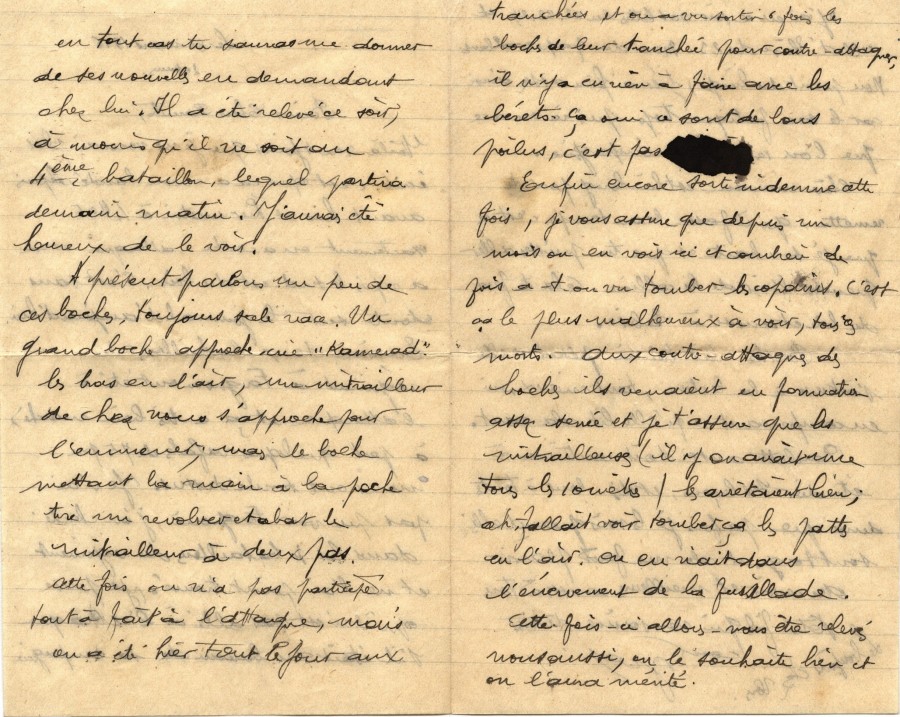 en tout cas tu sauras me donner
de ses nouvelles en demandant
chez lui. Il a été relevé ce soir,
à moins qu'il ne soit au
4ème bataillon, lequel partira
demain matin. J'aurais été
heureux de le voir.
A présent parlons un peu de
ces boches, toujours sale race. Un
grand boche approche, crie "Kamerad"
les bras en l'air, un mitrailleur
de chez nous s'approche pour
l'emmener, mais le boche
mettant la main à la poche
tire un revolver et abat le
mitrailleur à deux pas.
Cette fois on n'a pas participé
tout à fait à l'attaque, mais
on a été hier tout le jour aux
tranchées et on a vu sortir 6 fois les
boches de leur tranchée pour contre-attaquer,
il n'y a eu rien à faire avec les
bérets. Ça oui ce sont de bons
poilus, c'est pas
Enfin encore sorti indemne cette
fois, je vous assure que depuis un
mois on en vois ici et combien de
fois a-t-on vu tomber les copains. C'est
ça le plus malheureux à voir, tous ces
morts. Aux contre-attaques des
boches ils venaient en formation
assez serrée et je t'assure que les
mitrailleuses (il y en avait une
tous les 10 mètres) les arrêtaient bien;
ah, fallait voir tomber ça les pattes
en l'air. On en riait dans
l'énervement de la fusillade.
Cette fois-ci allons-nous être relevés
nous aussi, on le souhaite bien et
on l'aura mérité.